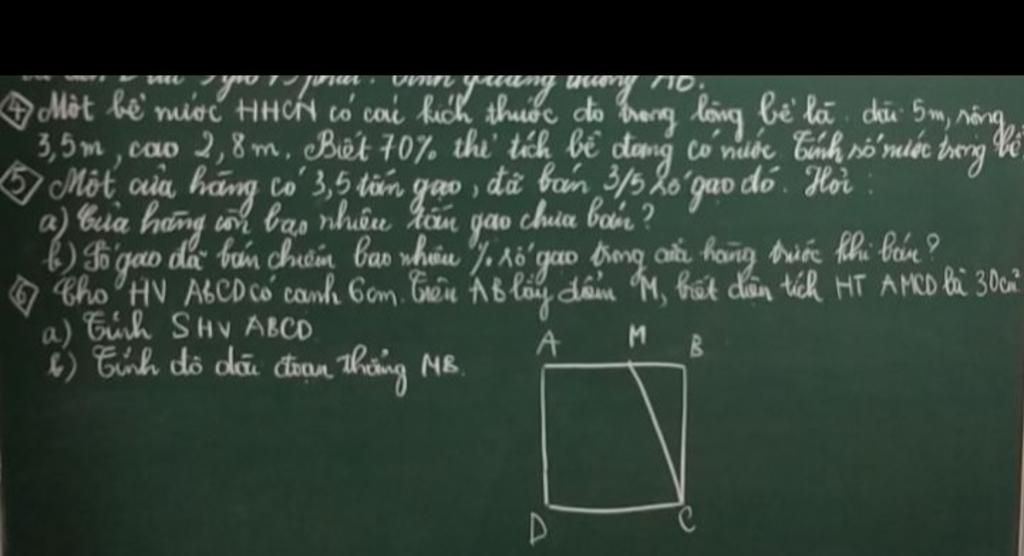 ④ Một bể nước HHCN có các kích thước đo trong lòng bể là dài 5m, rộng
3,5m, cao 2,8m. Biết 70% thể tích bể đang có nước. Tính số nước trong bể
⑤ Một cửa hàng có 3,5 tấn gạo, đã bán 3/5 số gạo đó. Hỏi :
a) Cửa hàng còn bao nhiêu tấn gạo chưa bán?
b) Số gạo đã bán chiếm bao nhiêu % số gạo trong cửa hàng trước khi bán?
⑥ Cho HV ABCD có cạnh 6cm. Trên AB lấy điểm M, biết diện tích HT AMCD là 30cm²
a) Tính SHV ABCD
b) Tính độ dài đoạn thẳng MB.
A M B
D C